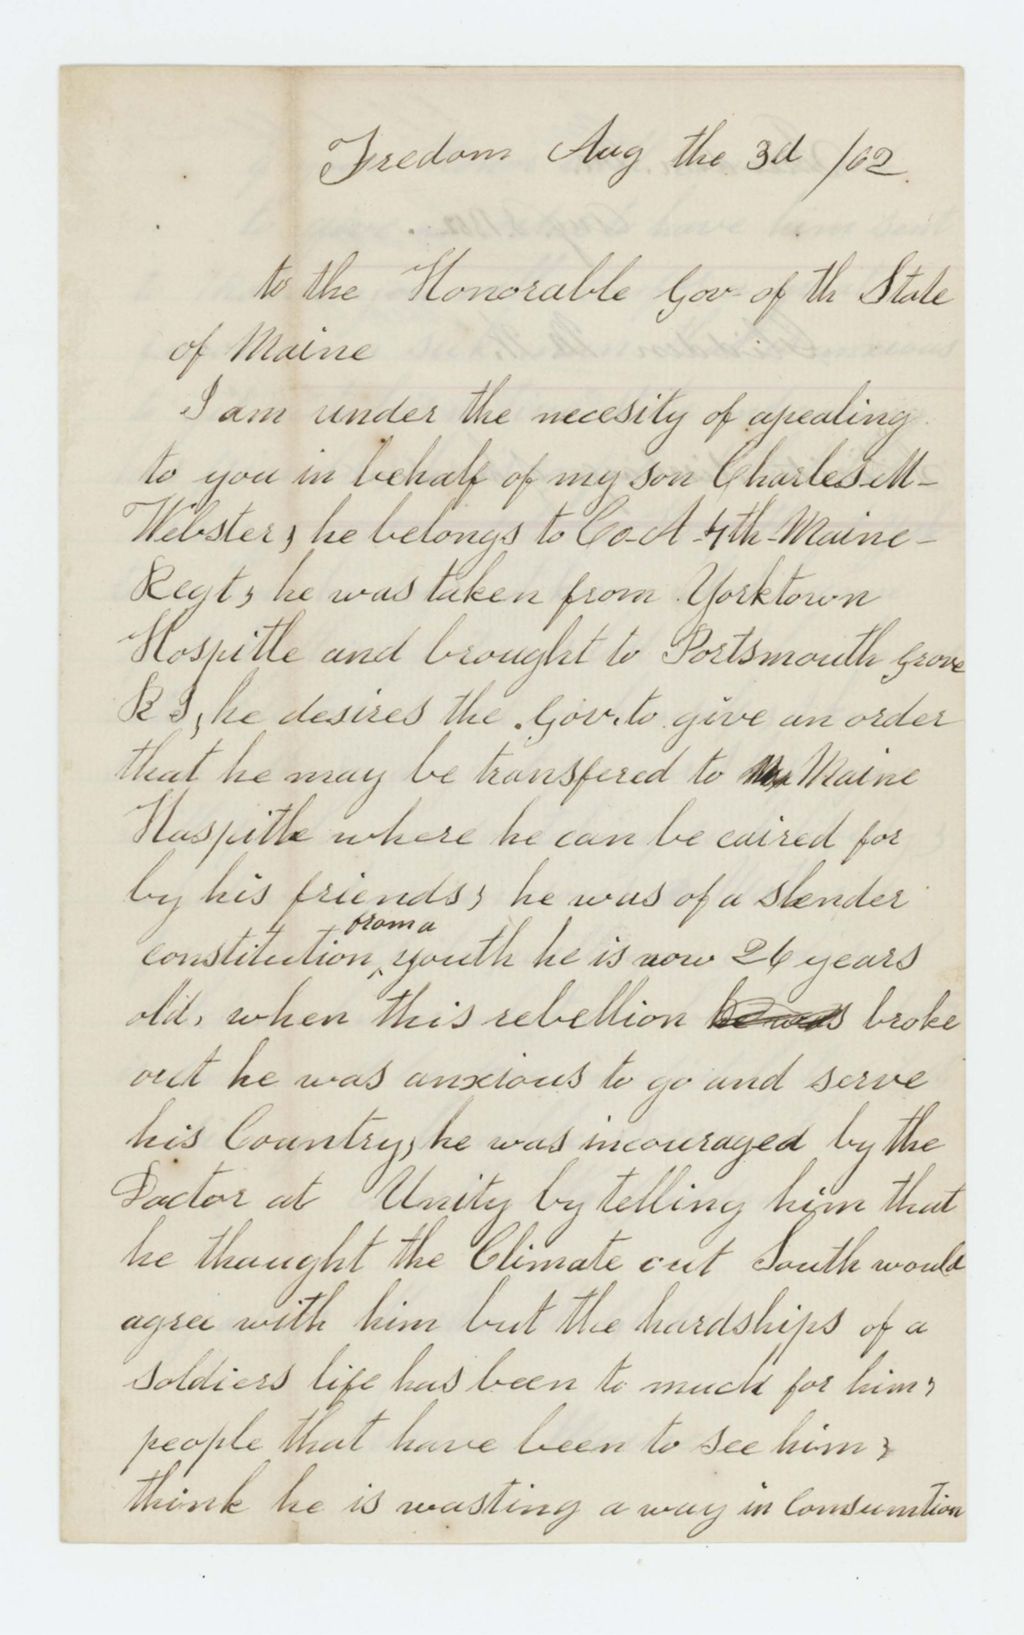 Fredom Aug the 3d /62
to the Honorable Gov of th State
of Maine
I am under the necesity of apealing
to you in behalf of my son Charles M-
Webster, he belongs to Co-A-4th-Maine-
Regt, he was taken from Yorktown
Hospitle and brought to Portsmouth Grove
R I, he desires the Gov. to give an order
that he may be transfered to Maine
Haspitle where he can be caired for
by his friends, he was of a slender
constitution from a youth he is now 26 years
old, when this rebellion he was broke
out he was anxious to go and serve
his Country, he was incouraged by the
Doctor at Unity by telling him that
he thought the Climate out South would
agree with him but the hardships of a
soldiers life has been to much for him,
people that have been to see him,
think he is wasting a way in Consumtion